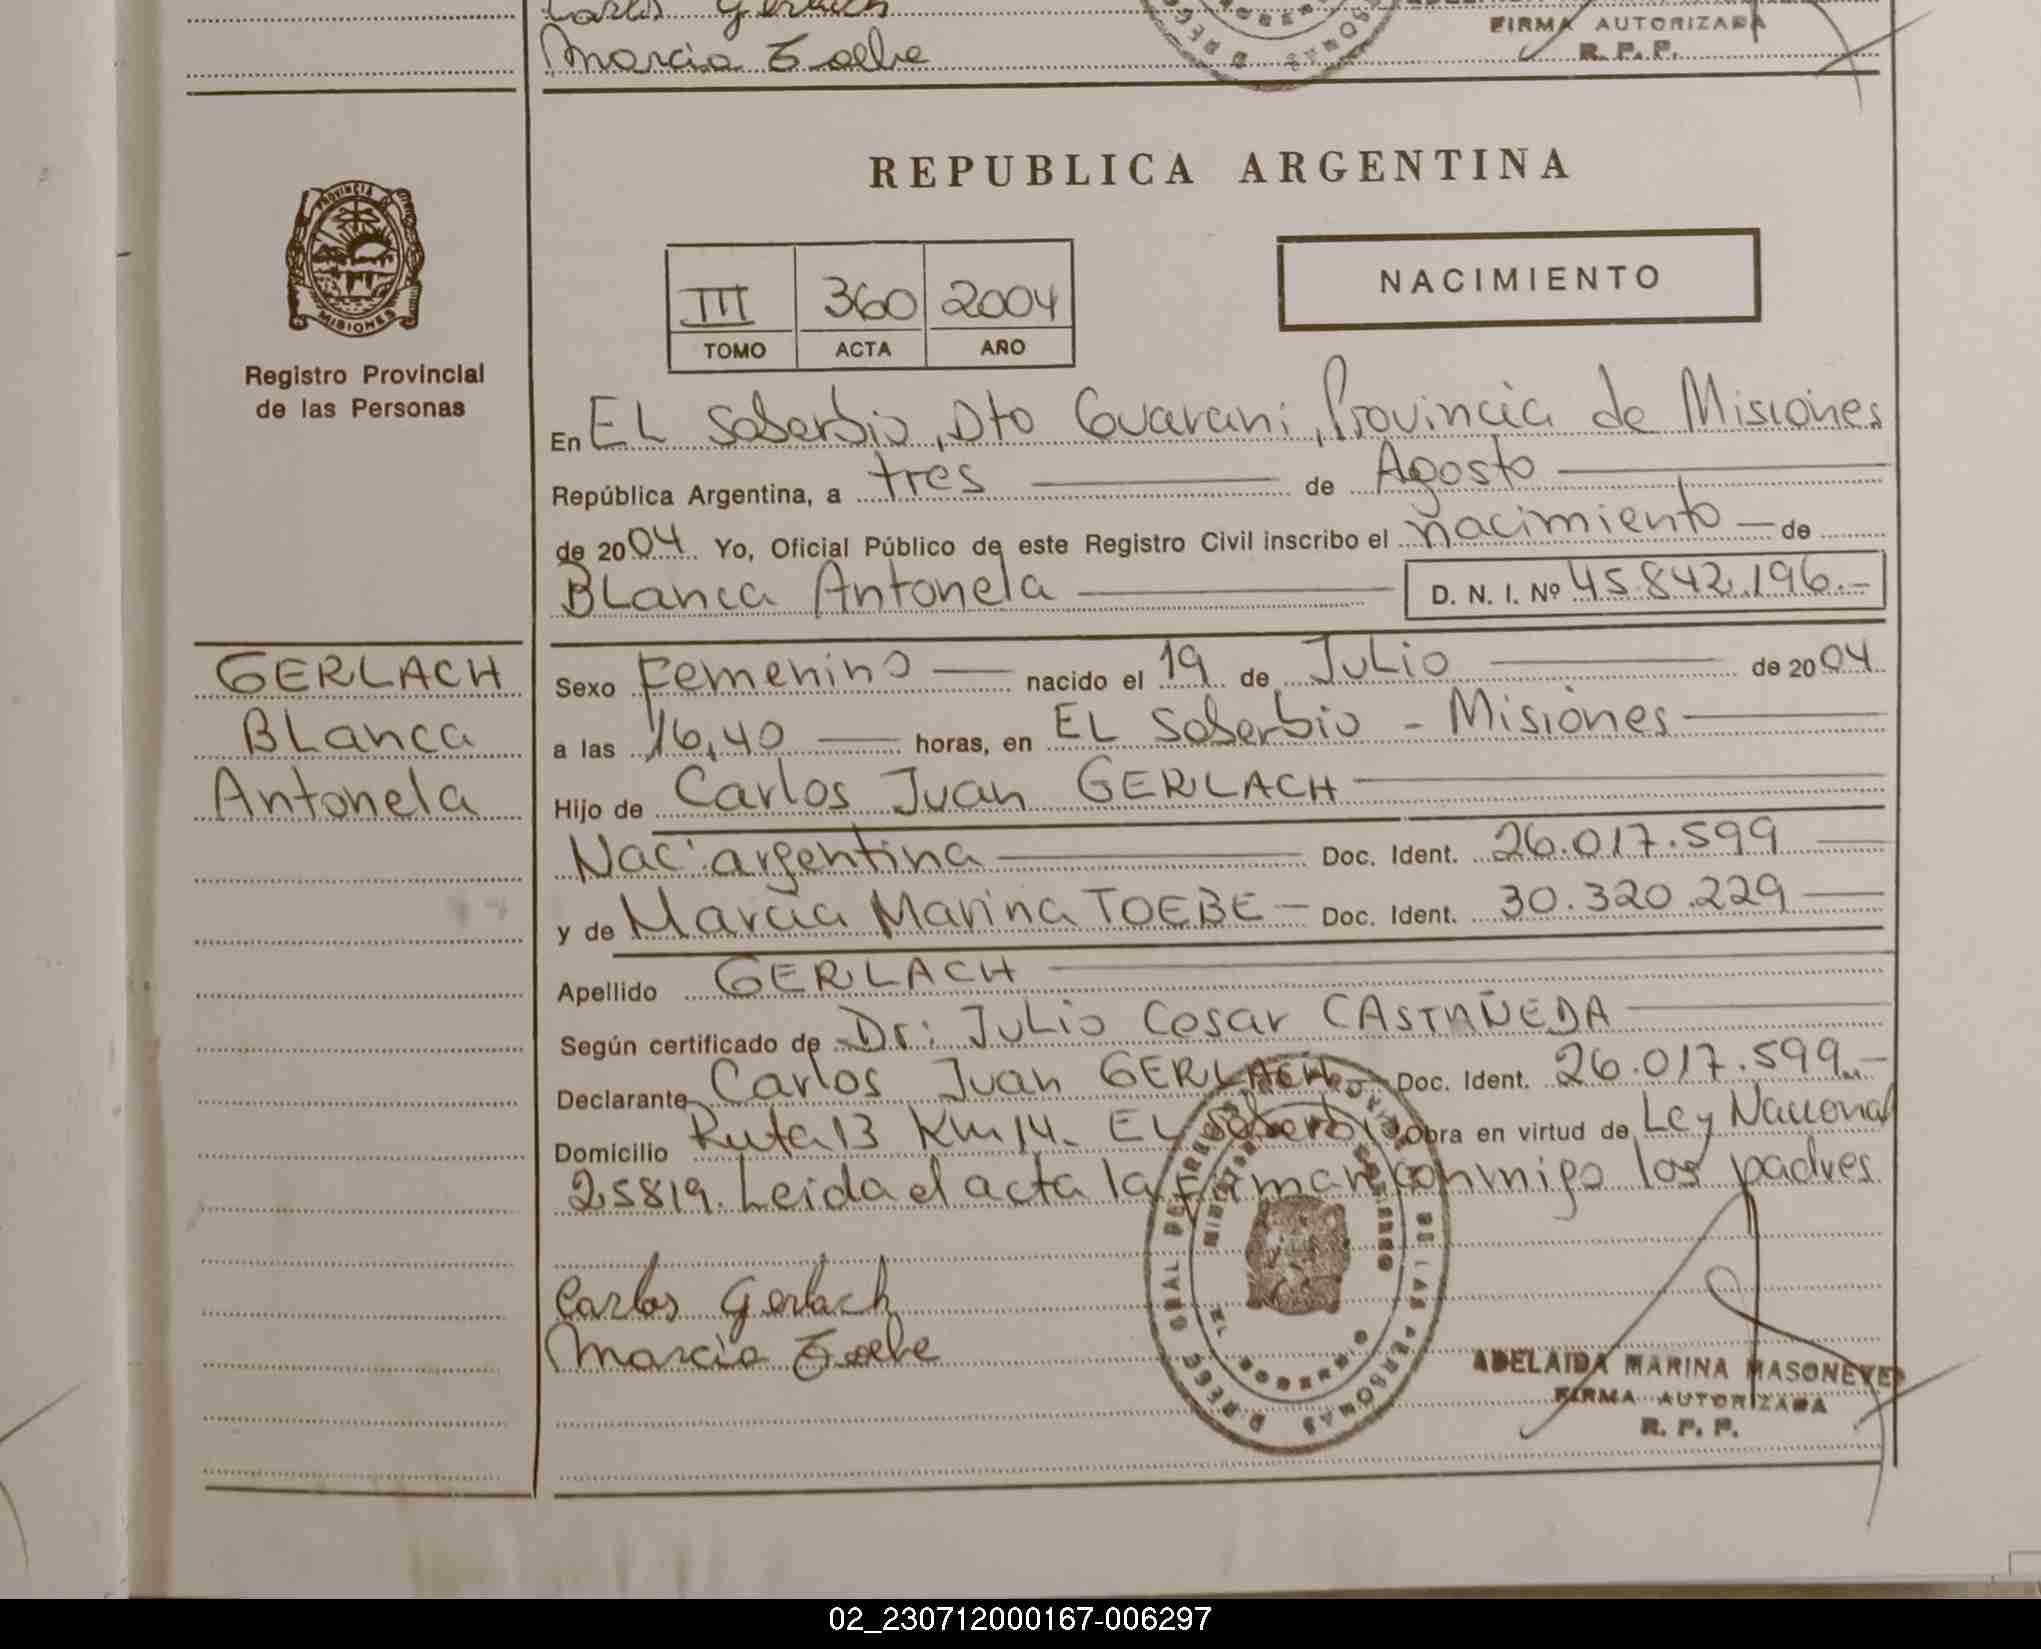 Carlos Gerlach
Marcia Toebe
FIRMA AUTORIZADA
R. P. P.
REPUBLICA ARGENTINA
PROVINCIA DE
MISIONES
Registro Provincial
de las Personas
III 360 2004
TOMO ACTA AÑO
NACIMIENTO
En EL Soberbio, Dto Guarani, Provincia de Misiones
República Argentina, a tres de Agosto
de 2004 Yo, Oficial Público de este Registro Civil inscribo el nacimiento de
Blanca Antonela D. N. I. Nº 45.842.196.-
GERLACH
Blanca
Antonela
Sexo Femenino nacido el 19 de Julio de 2004
a las 16,40 horas, en EL Soberbio - Misiones
Hijo de Carlos Juan GERLACH
Nac. argentina Doc. Ident. 26.017.599
y de Marcia Marina TOEBE Doc. Ident. 30.320.229
Apellido GERLACH
Según certificado de Dr: Julio Cesar CASTAÑEDA
Declarante Carlos Juan GERLACH Doc. Ident. 26.017.599.-
Domicilio Ruta 13 Km 14. EL Soberbio Obra en virtud de Ley Nacional
25819. Leida el acta la firman conmigo los padres
Carlos Gerlach
Marcia Toebe
ADELAIDA MARINA MASONEVE
FIRMA AUTORIZADA
R. P. P.
02_230712000167-006297